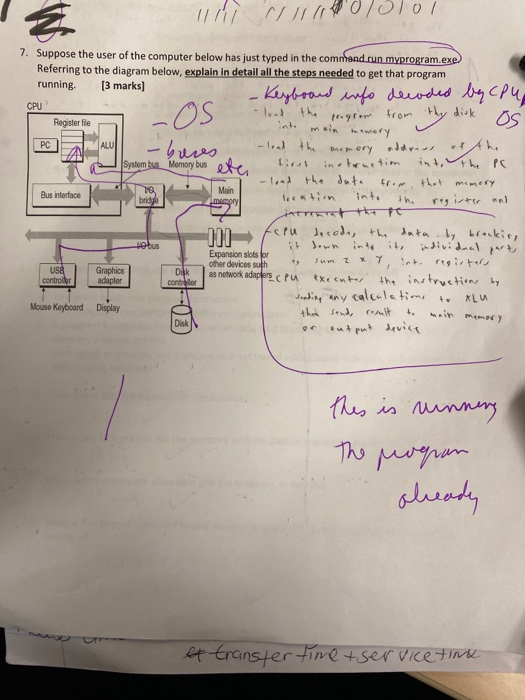 7. Suppose the user of the computer below has just typed in the command run myprogram.exe
Referring to the diagram below, explain in detail all the steps needed to get that program
running. [3 marks]
- Keyboard info decoded by CPU,
OS
- OS
- buses
etc
- load the program from the disk
into main memory
- load the memory address of the
first instruction into the PC
- load the data from that memory
location into the register and
increment the PC
- CPU decodes the data by breaking
it down into its individual parts
sum z x y, int. registers
- CPU executes the instructions by
sending any calculations to ALU
then sends result to main memory
or output device
CPU
Register file
PC
ALU
System bus Memory bus
Bus interface
I/O
bridge
Main
memory
I/O bus
Expansion slots for
other devices such
as network adapters
USB
controller
Graphics
adapter
Disk
controller
Mouse Keyboard Display
Disk
this is running
the program
already
transfer time + service time